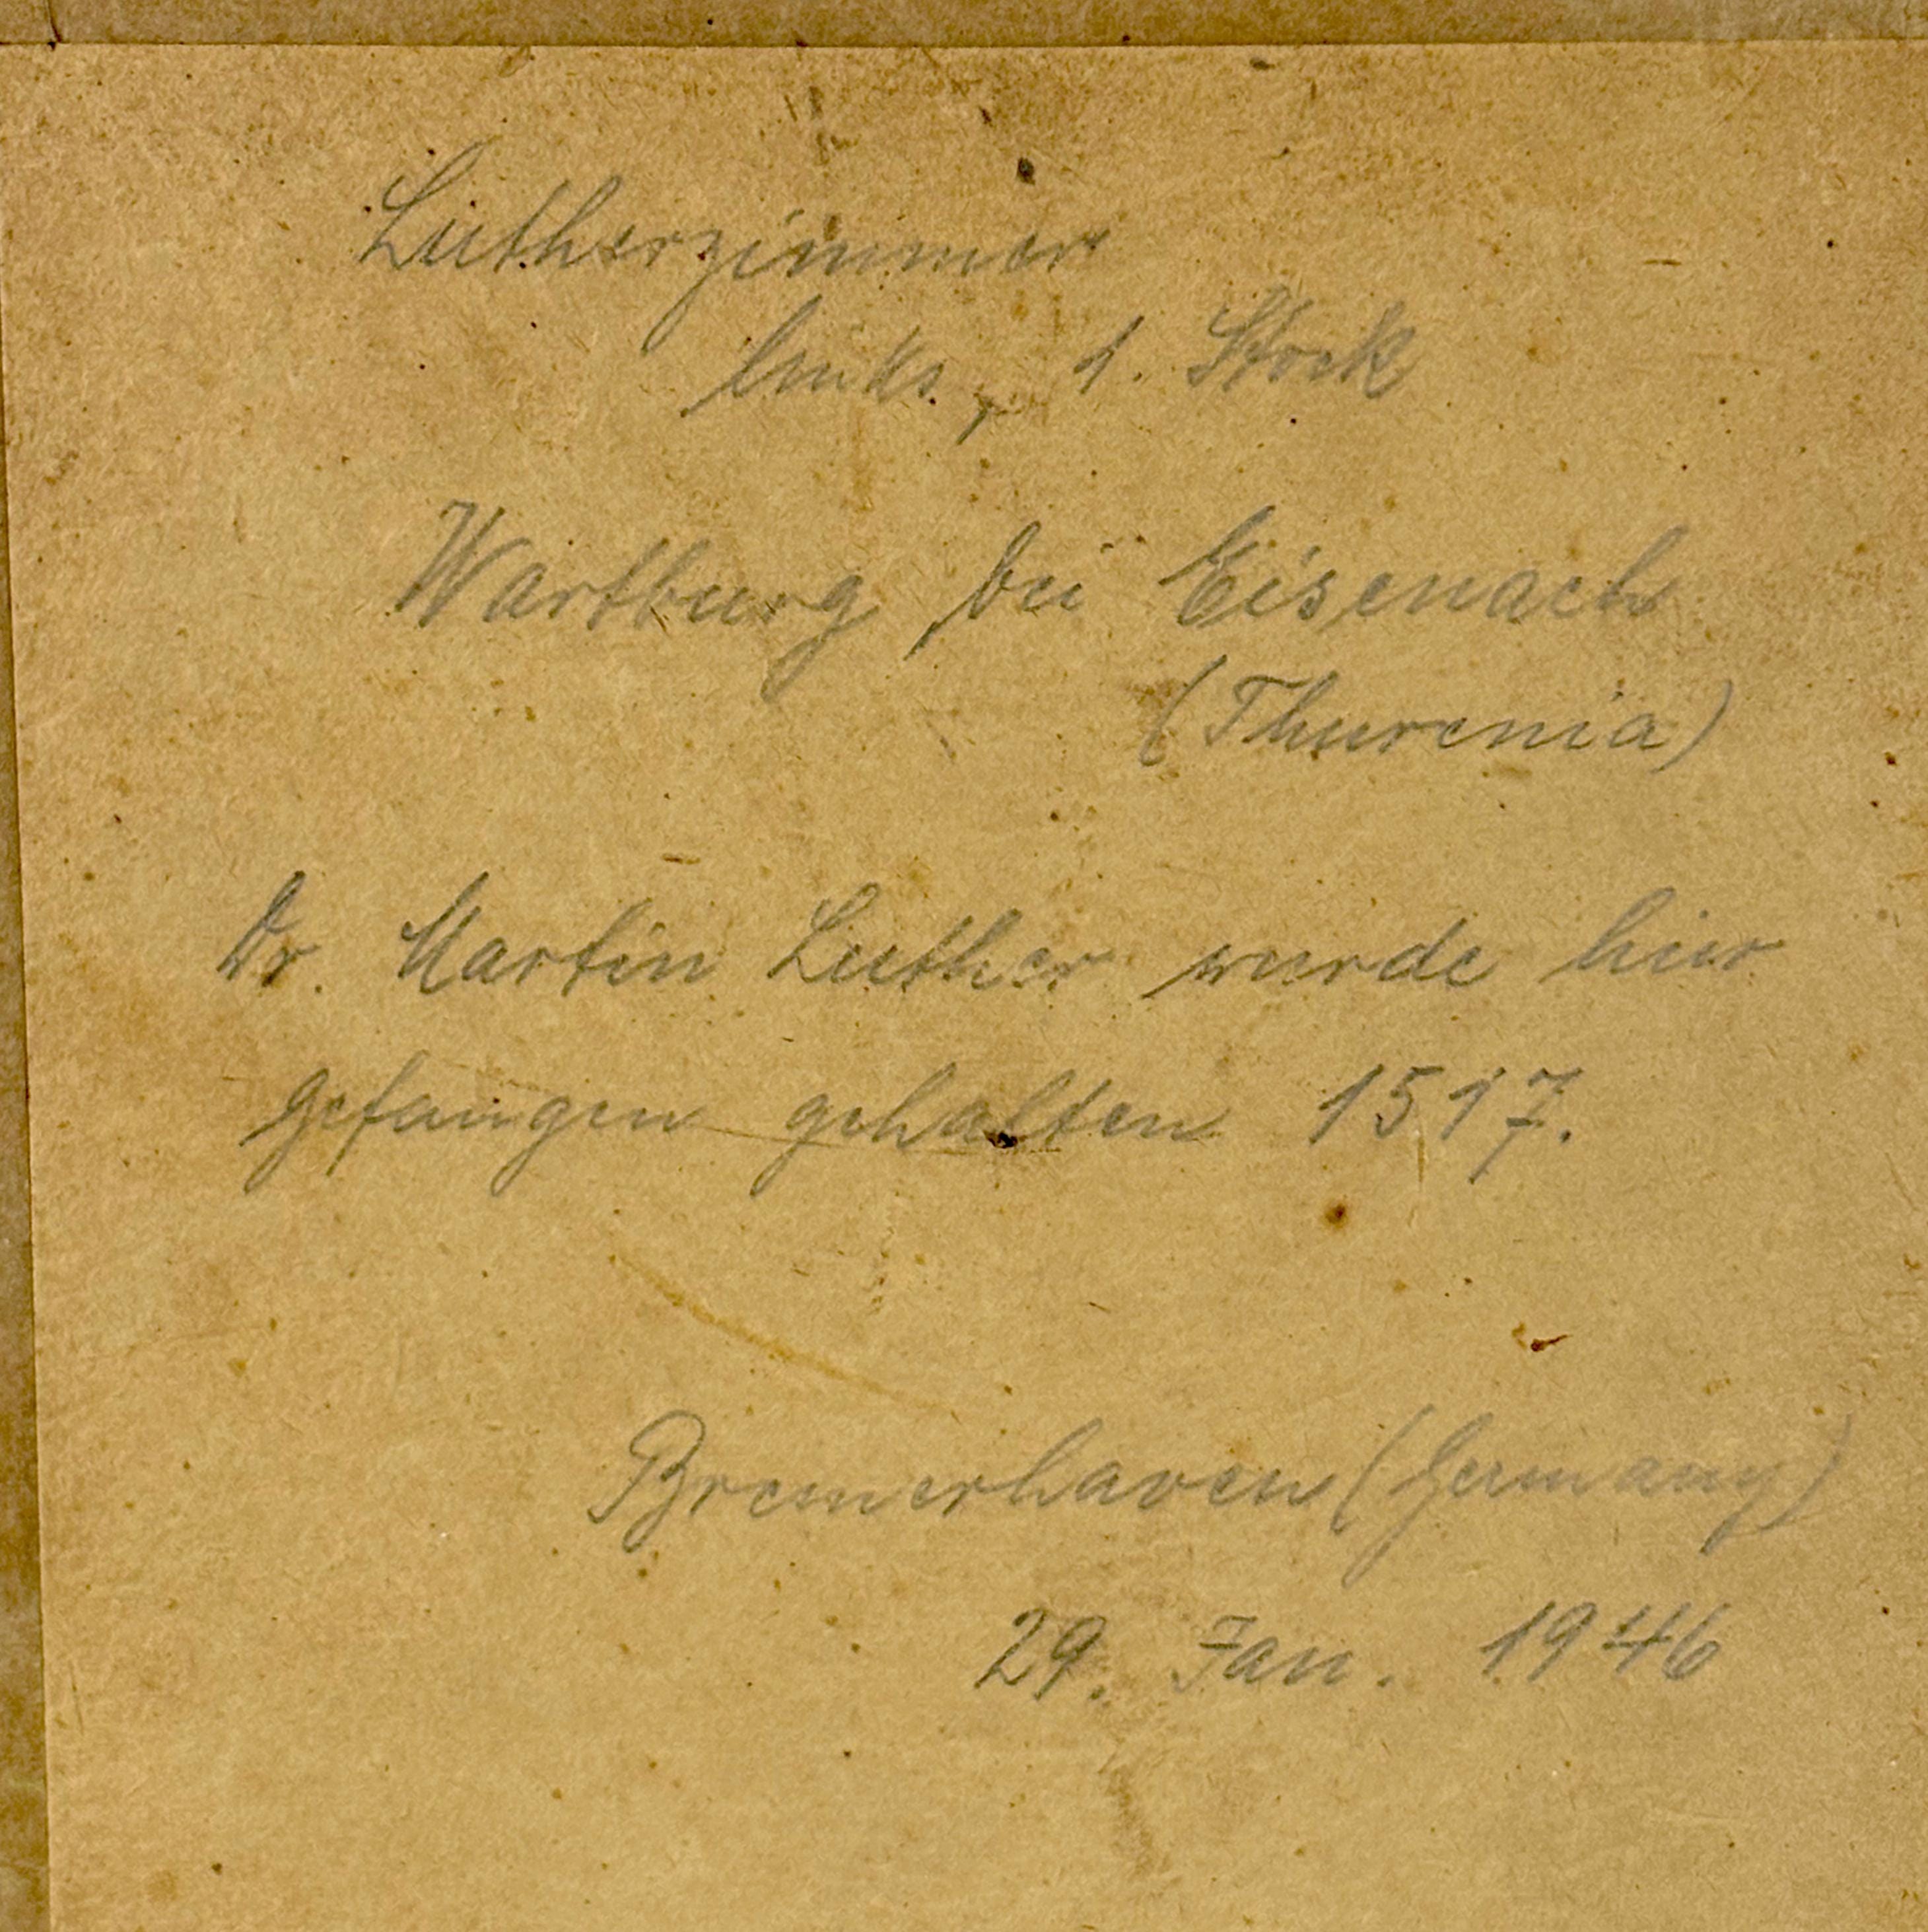 Lutherzimmer
links, 1. Stock
Wartburg bei Eisenach
(Thurenia)
Dr. Martin Luther wurde hier
gefangen gehalten 1517.
Bremerhaven (Germany)
29. Jan. 1946